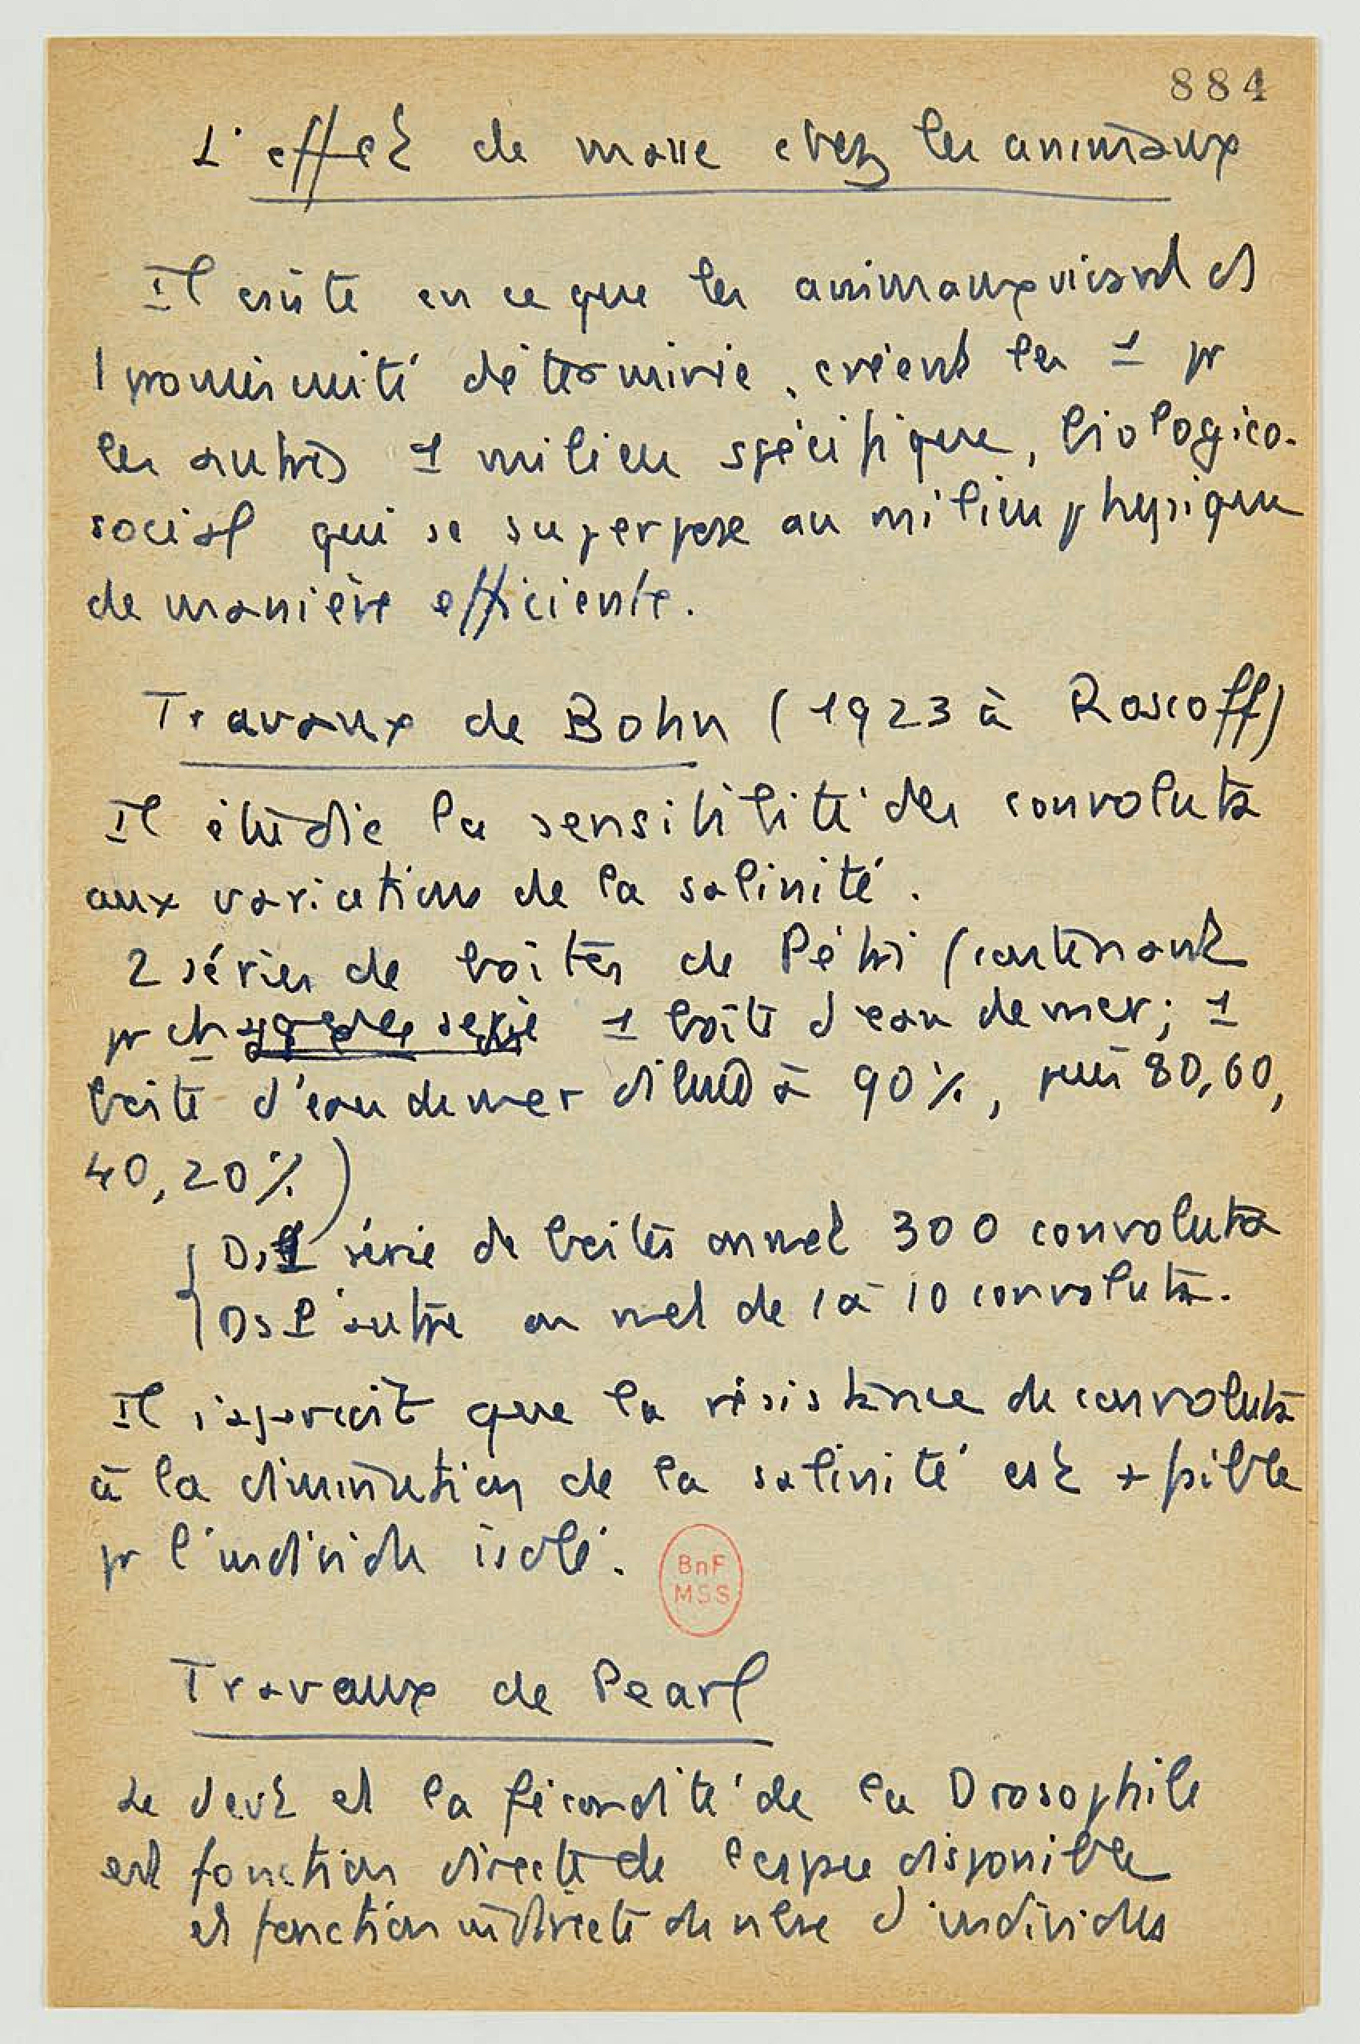 884
L'effet de masse chez les animaux
Il existe en ce que les animaux vivant ds
1 promiscuité déterminée, créent les 1 pr
les autres 1 milieu spécifique, biologico-
social qui se superpose au milieu physique
de manière efficiente.
Travaux de Bohn (1923 à Roscoff)
Il étudie la sensibilité des convoluta
aux variations de la salinité.
2 séries de boîtes de Pétri (contenant
pr ch série 1 boîte d'eau de mer; 1
boîte d'eau de mer diluée à 90%, puis 80, 60,
40, 20%)
Ds 1 série de boîtes on met 300 convoluta
Ds l'autre on met de 1 à 10 convoluta.
Il s'aperçoit que la résistance de convoluta
à la diminution de la salinité est + faible
pr l'individu isolé.
BnF
MSS
Travaux de Pearl
Le devt et la fécondité de la Drosophile
est fonction directe de l'espace disponible
et fonction indirecte du nbre d'individus